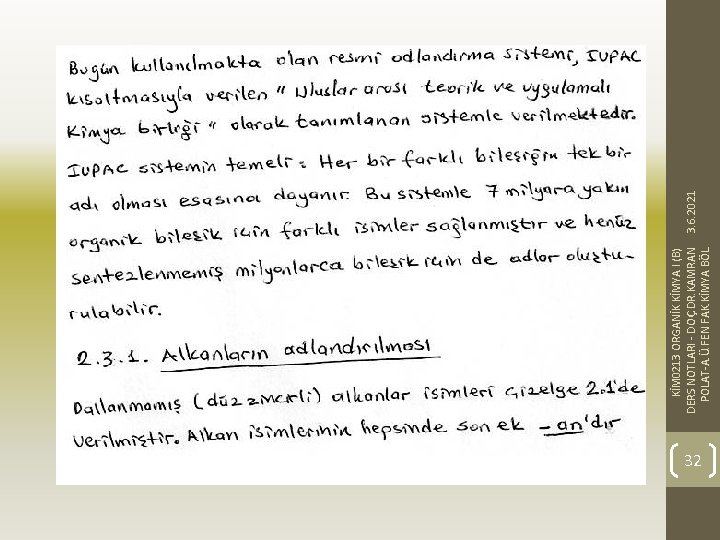 Bugün kullanılmakta olan resmi adlandırma sistemi, IUPAC
kısaltmasıyla verilen "Uluslar arası teorik ve uygulamalı
Kimya birliği" olarak tanımlanan sistemle verilmektedir.
IUPAC sistemin temeli: Her bir farklı bileşiğin tek bir
adı olması esasına dayanır. Bu sistemle 7 milyara yakın
organik bileşik için farklı isimler sağlanmıştır ve henüz
sentezlenmemiş milyonlarca bileşik için de adlar oluştu-
rulabilir.
2.3.1. Alkanların adlandırılması
Dallanmamış (düz zincirli) alkanlar isimleri Çizelge 2.1'de
verilmiştir. Alkan isimlerinin hepsinde son ek -an'dır
KİM0213 ORGANİK KİMYA I (B)
DERS NOTLARI - DOÇ.DR.KAMRAN
POLAT-A.Ü.FEN FAK KİMYA BÖL
3.6.2021
32